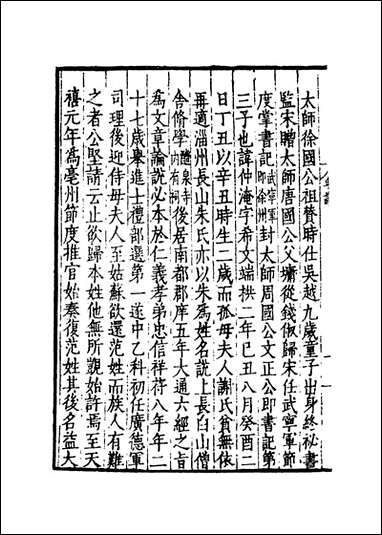 太師徐國公祖贊時仕吳越九歲童子出身終祕書
監宋贈太師唐國公父墉從錢俶歸宋任武寧軍節
度掌書記武寧軍即徐州封太師周國公文正公即書記第
三子也諱仲淹字希文端拱二年己丑八月癸酉二
日丁丑以辛丑時生二歲而孤母夫人謝氏貧無依
再適淄州長山朱氏亦以朱為姓名說上長白山僧
舍脩學醴泉寺內有祠後居南都郡庠五年大通六經之旨
為文章論說必本於仁義孝弟忠信祥符八年年二
十七歲舉進士禮部選第一遂中乙科初任廣德軍
司理後迎侍母夫人至姑蘇欲還范姓而族人有難
之者公堅請云止欲歸本姓他無所覬始許焉至天
禧元年為亳州節度推官始奏復范姓其後名益大